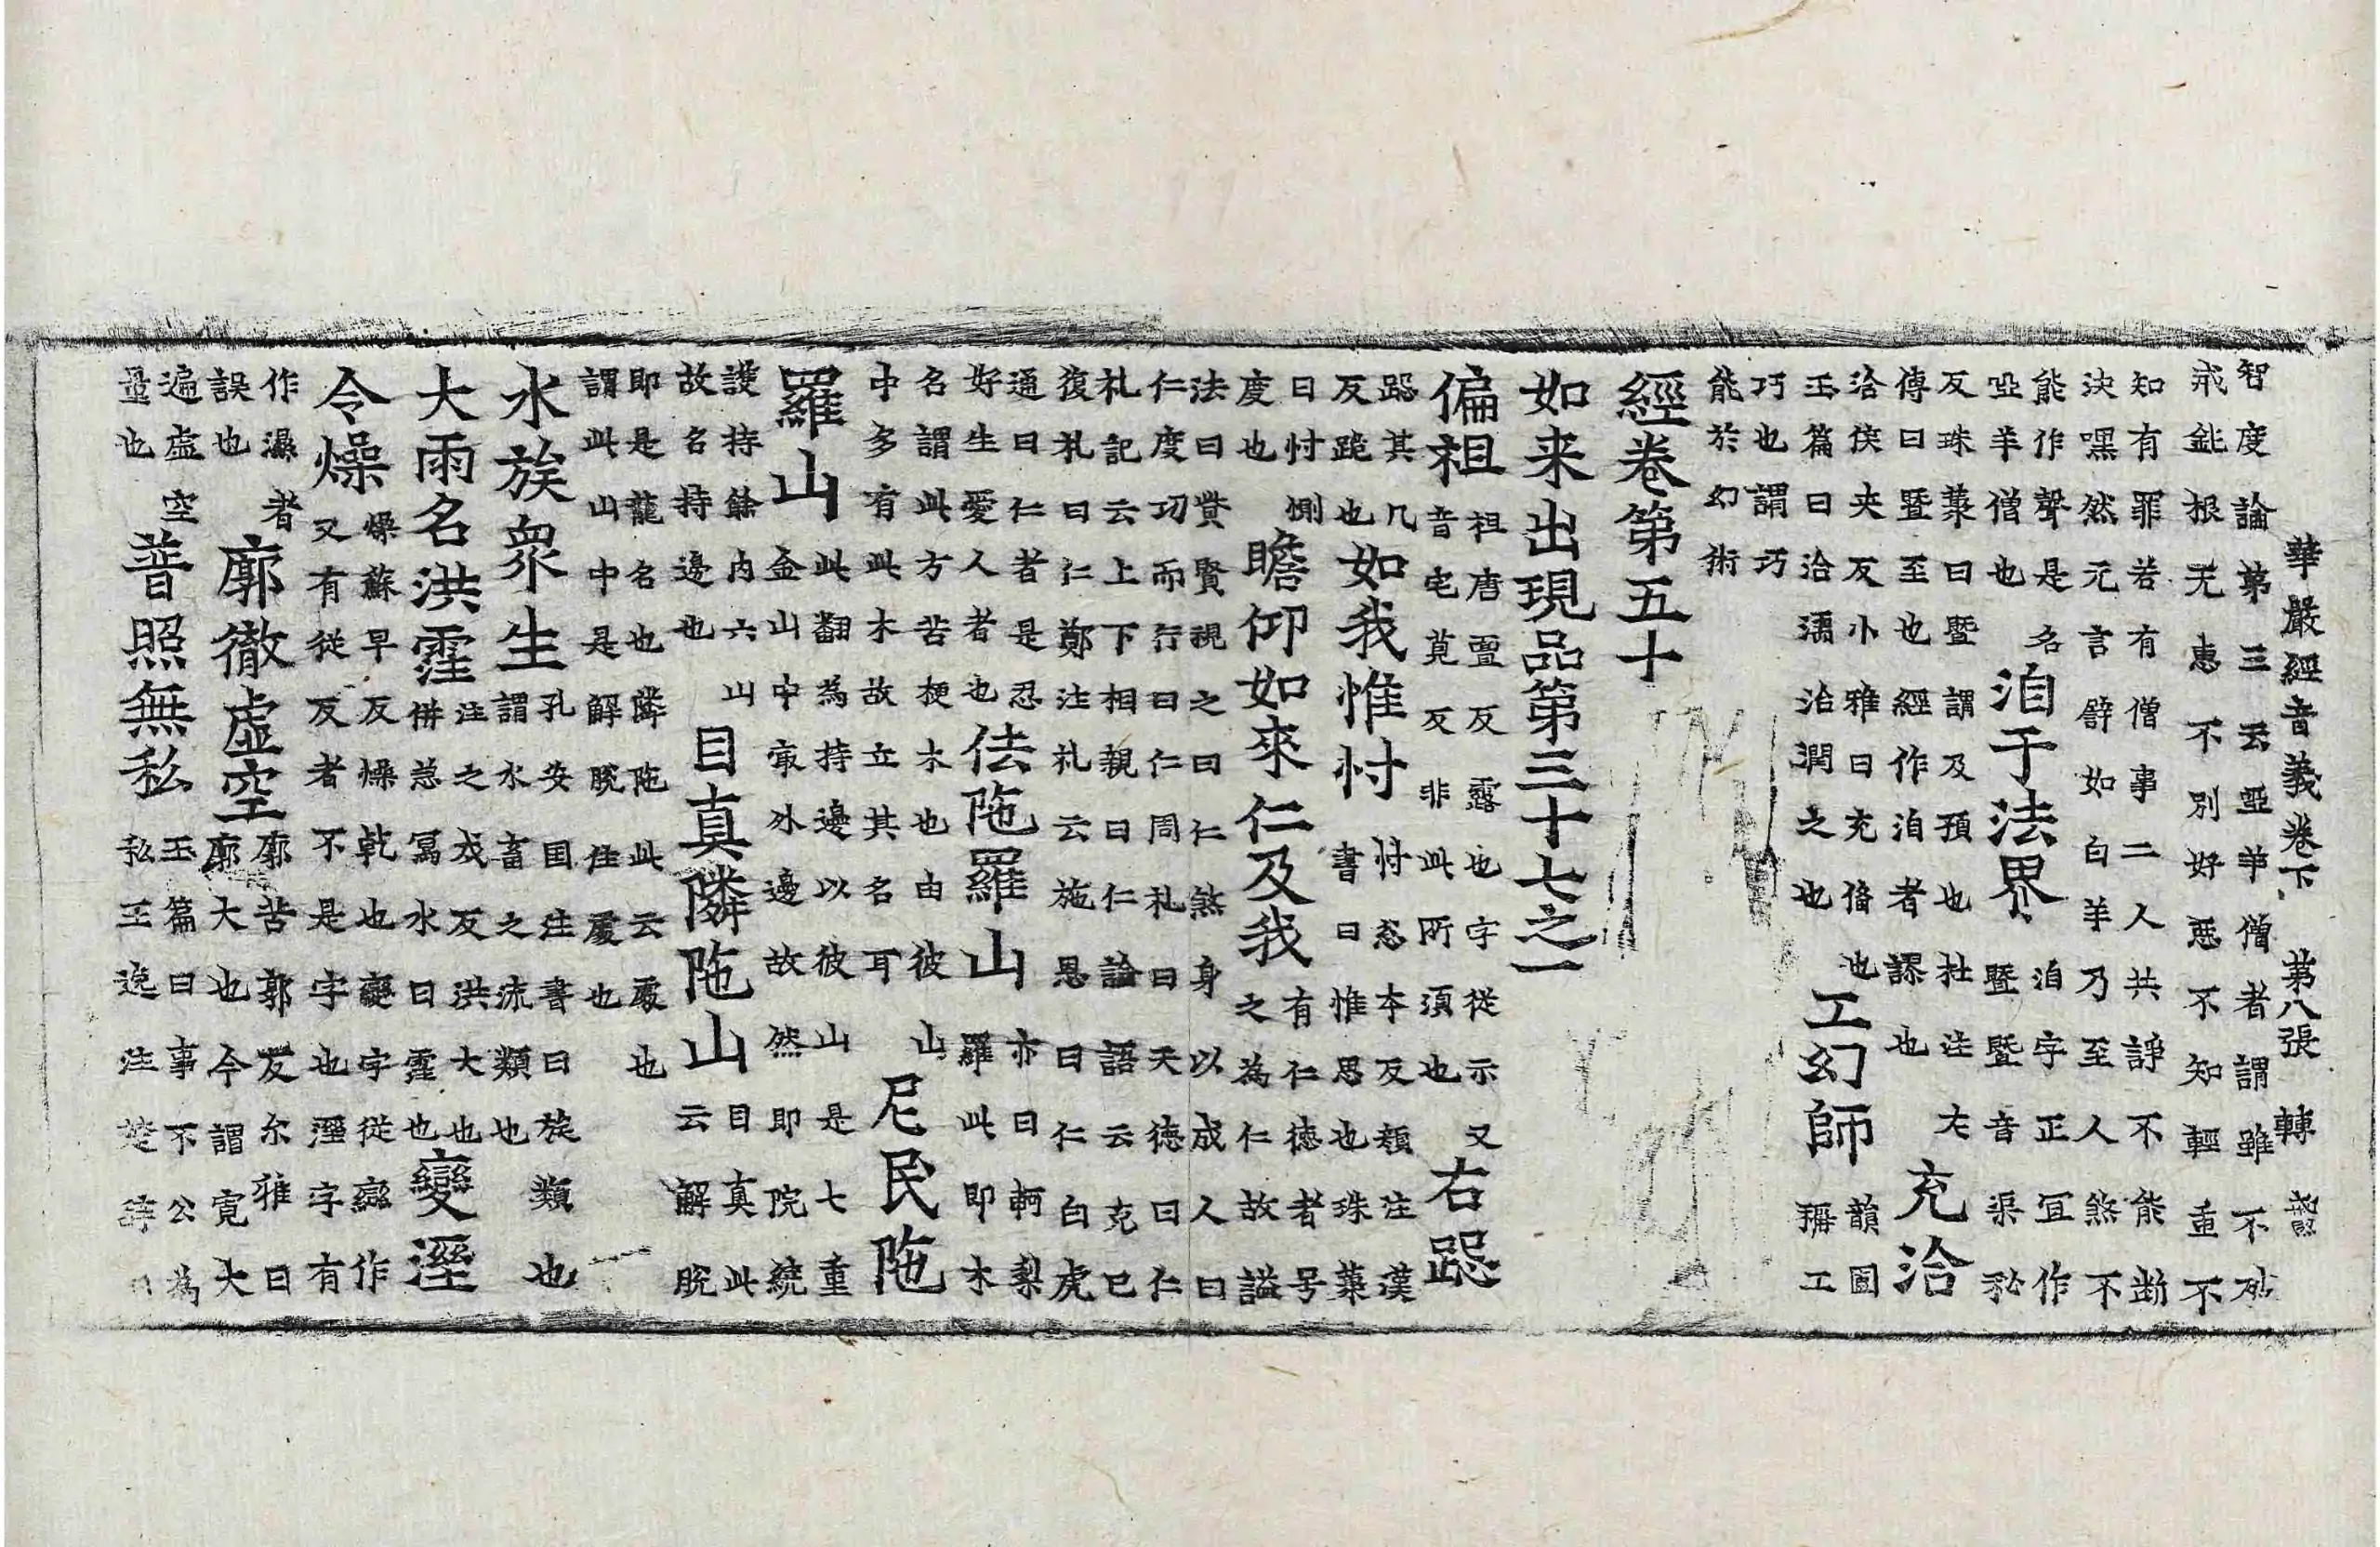 華嚴經音義卷下 第八張 轉
智度論第三云瘂羊僧者謂雖不破
戒鈍根无惠不別好惡不知輕重不
知有罪若有僧事二人共諍不能斷
決嘿然无言辟如白羊乃至人煞不
能作聲是名
瘂羊僧也
洎于法界
洎字正冝作
暨暨音渠秘
反珠䕺曰暨謂及預也杜注左
傳曰暨至也經作洎者謬也
充洽
洽侠夾反小雅曰充俻也
玉篇曰洽濡洽潤之也
工幻師
韻圃
稱工
巧也謂巧
能於幻術
經卷第五十
如来出現品第三十七之一
偏袒
袒唐亶反露也字從示又
音宅莧反非此所湏也
右跽
跽其几
反跪也
如我惟忖
忖忩本反頛注漢
書曰惟思也珠䕺
曰忖惻
度也
瞻仰如來仁及我
有仁德者号
之為仁故謚
法曰贊賢親之曰仁煞身以成人曰
仁度功而行曰仁周札曰天德曰仁
札記云上下相親曰仁論語云克己
復札曰仁鄭注札云施恩曰仁白虎
通曰仁者是忍
好生愛人者也
佉陁羅山
亦曰軻梨
羅此即木
名謂此方苦楩木也由彼山
中多有此木故立其名耳
尼民陁
羅山
此翻為持邊以彼山是七重
金山中㝡外邊故然即院繞
護持餘內六山
故名持邊也
目真隣陁山
目真此
云解脫
即是龍名也隣陁此云處也
謂此山中是解脫住處也
水族衆生
孔安囯注書曰族類也
謂水畜之流類也
大雨名洪霔
注之戍反洪大也
倂㤅冩水曰霔也
變溼
令燥
燥蘇早反燥乾也變字從䜌作
又有從反者不是字也溼字有
作濕者
誤也
廓徹虛空
廓苦郭反尓雅曰
廓大也今謂寬大
遍虛空
量也
普照無私
玉篇曰事不公為
私王逸注楚辝曰